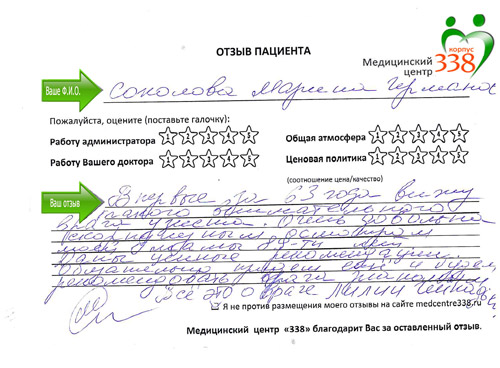 ОТЗЫВ ПАЦИЕНТА
Медицинский центр
корпус
338
Ваше Ф.И.О.
Соколова Марина Германовна
Пожалуйста, оцените (поставьте галочку):
Работу администратора 1 2 3 4 5
Общая атмосфера 1 2 3 4 5
Работу Вашего доктора 1 2 3 4 5
Ценовая политика 1 2 3 4 5
(соотношение цена/качество)
Ваш отзыв
Впервые за 63 года вижу
такого внимательного
врача Очень довольна
осмотром
моей мамы 84-ти лет
Даны ценные рекомендации.
Обязательно придем еще и будем
рекомендовать врача знакомым
Все это о враче
Я не против размещения моего отзывы на сайте medcentre338.ru
Медицинский центр «338» благодарит Вас за оставленный отзыв.